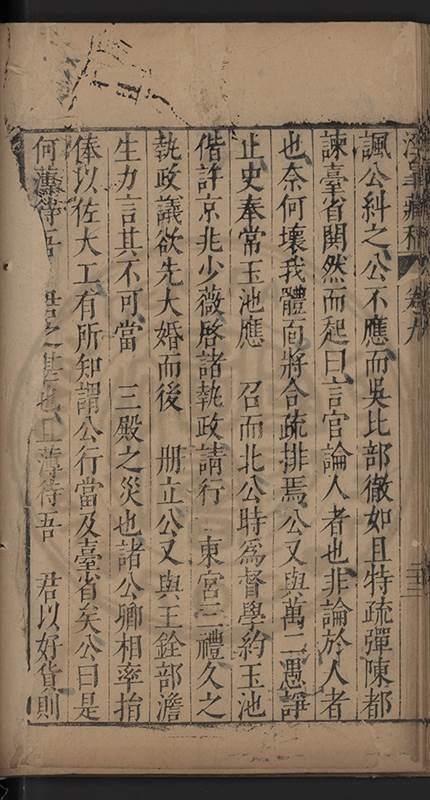 涇皋藏稿 卷九
諷公糾之公不應而吳比部徹如且特疏彈陳都
諫臺省閧然而起曰言官論人者也非論於人者
也奈何壞我體面將合疏排焉公又與萬二愚諍
止史奉常玉池應 召而北公時為督學約玉池
偕許京兆少薇啓諸執政請行 東宮三禮久之
執政議欲先大婚而後 册立公又與王銓部澹
生力言其不可當 三殿之災也諸公卿相率捐
俸以佐大工有所知謂公行當及臺省矣公曰是
何薄待吾 君之甚也上薄待吾 君以好貨則